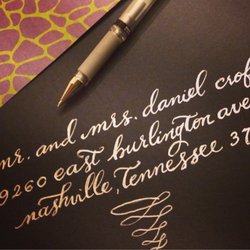 mr. and mrs. daniel crof
9260 east burlington ave
nashville, tennessee 37